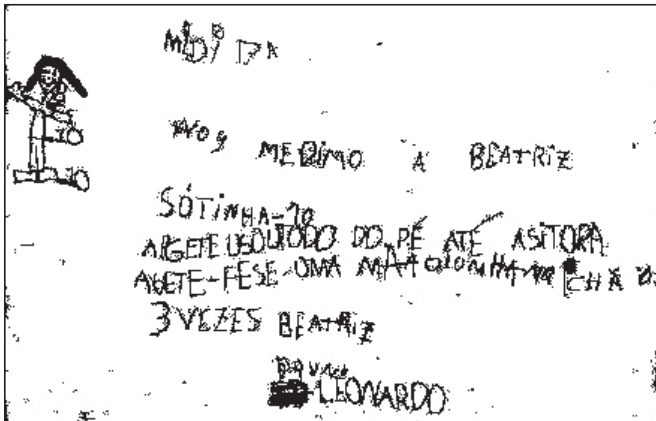 MIDIDA
NOS MEDIMO A BEATRIZ
SÓTINHA-10
AJGETE USOUTODO DO PÉ ATÉ ASITORA
AGETE-FESE-UMA CHÃ
3 VEZES BEATRIZ
LEONARDO
10
10